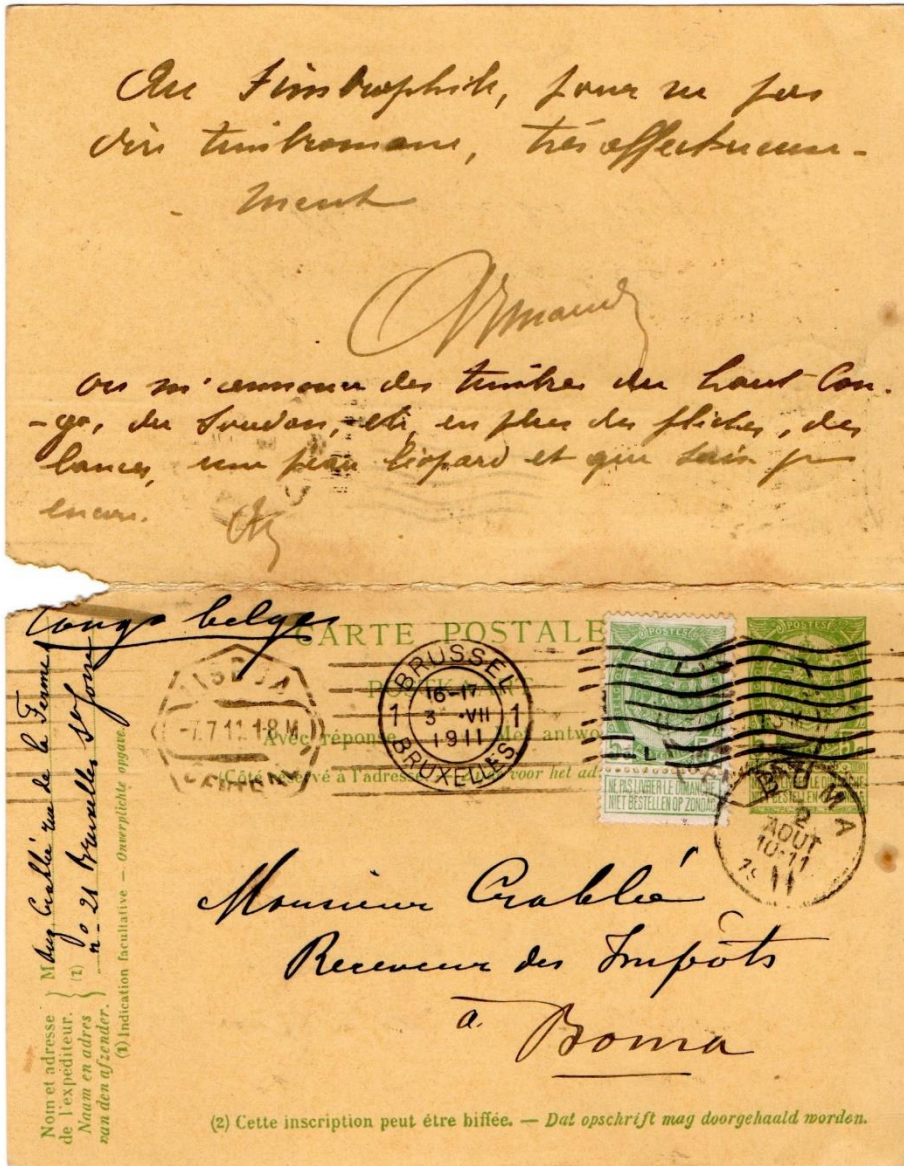 Au Timbrophile, pour ne pas
dire timbromane, très affectueuse-
ment
Armand
on m'annonce des timbres du haut Con-
-go, du Soudan, et, en plus des flèches, des
lances, une peau léopard et que sais je
encore.
Congo belge
CARTE POSTALE
POSTKAART
Avec réponse Met antwo
(Côté réservé à l'adresse voor het ad
BRUSSEL
16-17
1 3 VII 1
1911
BRUXELLES
LISBOA
-7.7.11.1-8.M
CENTRAL
POSTES
NE PAS LIVRER LE DIMANCHE
NIET BESTELLEN OP ZONDAG
POSTES
BOMA
2
AOUT
10-11
1911
Monsieur Crabbé
Receveur des Impôts
à
Boma
Nom et adresse
de l'expéditeur.
Naam en adres
van den afzender.
(1)
M Aug. Crabbé rue de la Ferme
n° 21 Bruxelles
(1) Indication facultative — Onverplichte opgave.
(2) Cette inscription peut être biffée. — Dat opschrift mag doorgehaald worden.